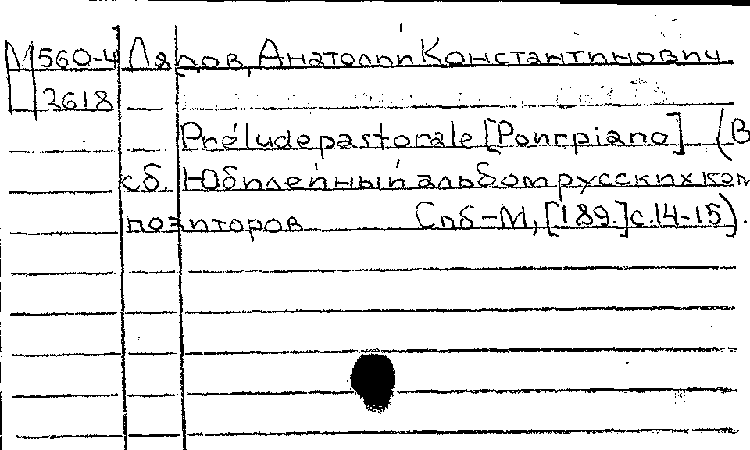 М560-4 Лядов, Анатолий Константинович
3618
Prélude pastorale [Pour piano] (В
сб. Юбилейный альбом русских ком
позиторов Спб-М, [189.] с.14-15).